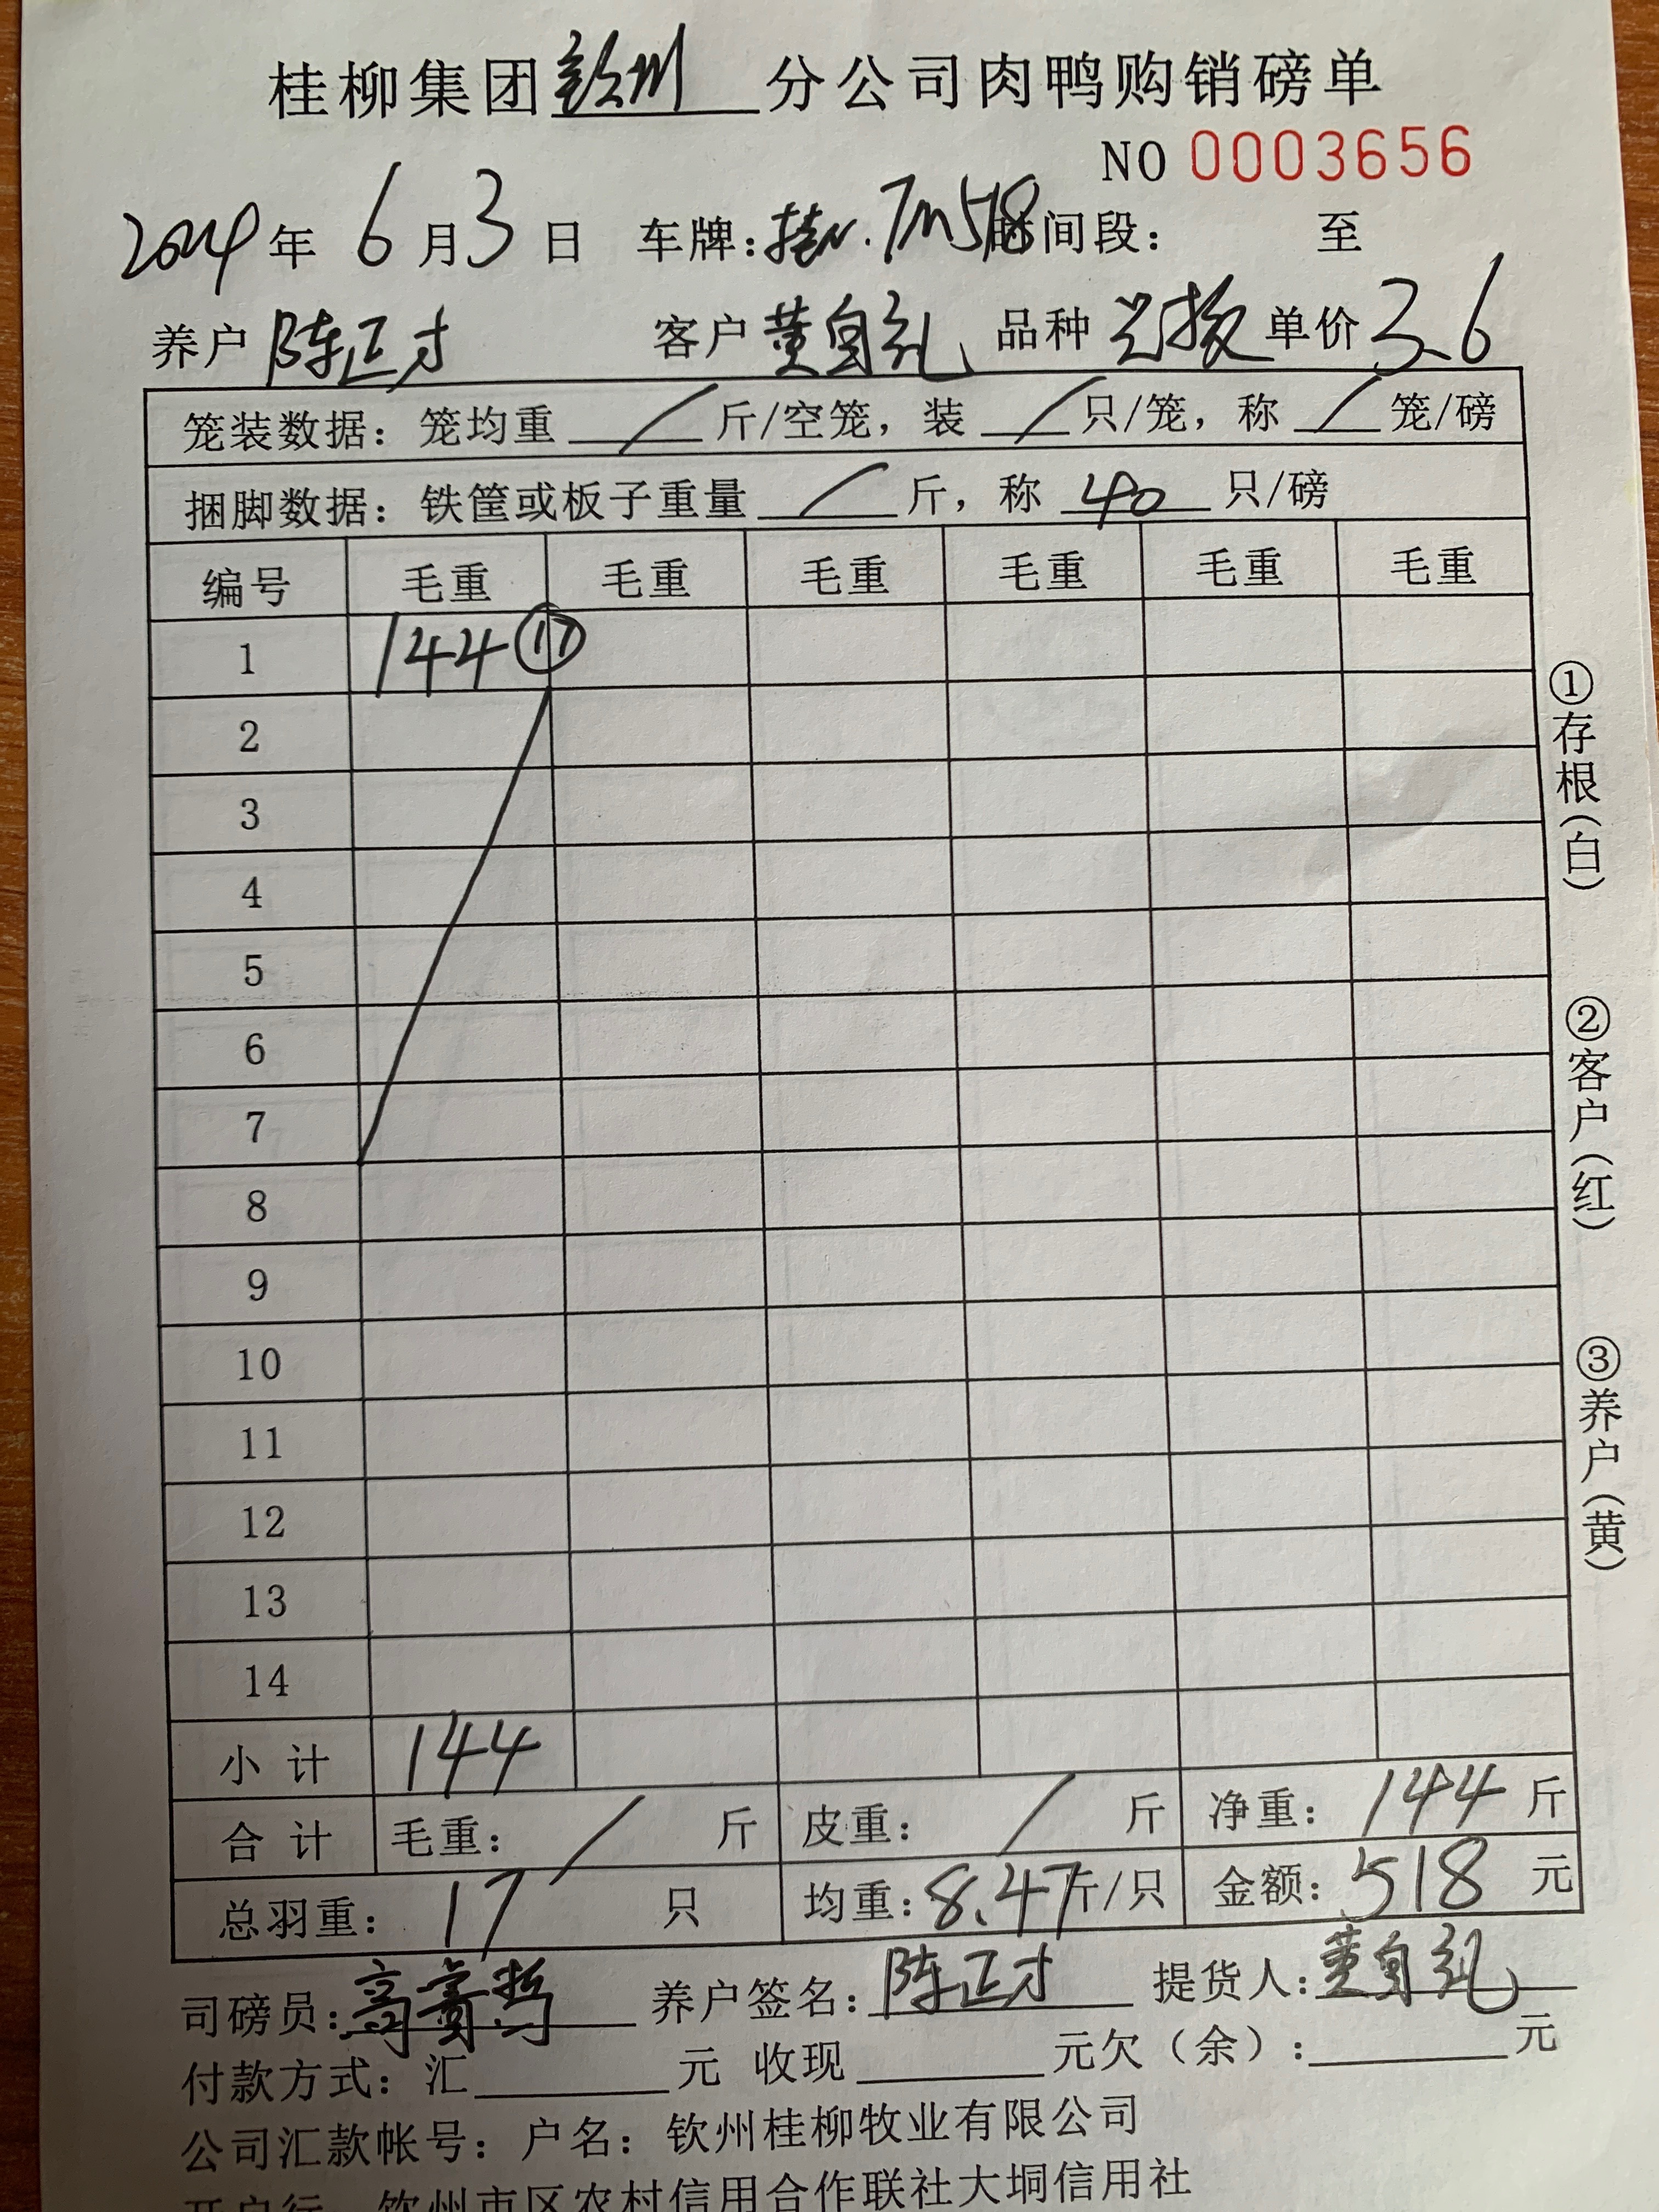 桂柳集团钦州分公司肉鸭购销磅单
NO 0003656
2024年 6月3日 车牌:桂N.7M518时间段: 至
养户 陈正才 客户 黄自礼 品种 单价3.6
笼装数据: 笼均重 / 斤/空笼, 装 / 只/笼, 称 / 笼/磅
捆脚数据: 铁筐或板子重量 / 斤, 称 40 只/磅
编号 毛重 毛重 毛重 毛重 毛重 毛重
1 144 ⑰
2
3
4
5
6
7
8
9
10
11
12
13
14
小 计 144
合 计 毛重: / 斤 皮重: / 斤 净重: 144 斤
总羽重: 17 只 均重:8.47斤/只 金额:518 元
司磅员: 养户签名:陈正才 提货人:黄自礼
付款方式: 汇 元 收现 元欠(余): 元
公司汇款帐号: 户名: 钦州桂柳牧业有限公司
开户行 钦州市区农村信用合作联社大垌信用社
①存根(白)
②客户(红)
③养户(黄)